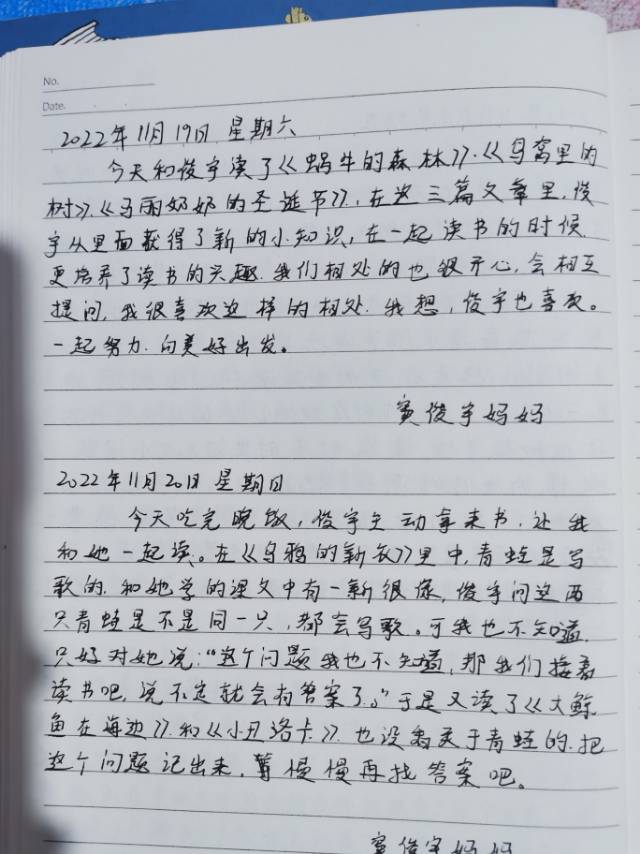 No.
Date.
2022年11月19日 星期六
今天和俊宇读了《蜗牛的森林》.《鸟窝里的
树》.《马丽奶奶的圣诞节》, 在这三篇文章里, 俊
宇从里面获得了新的小知识, 在一起读书的时候
更培养了读书的兴趣. 我们相处的也很开心, 会相互
提问, 我很喜欢这样的相处. 我想, 俊宇也喜欢。
一起努力. 向美好出发。
俊宇妈妈
2022年11月20日 星期日
今天吃完晚饭, 俊宇主动拿来书, 让我
和她一起读。在《乌鸦的新衣》里中, 青蛙是写
歌的. 和她学的课文中有一新很像, 俊宇问这两
只青蛙是不是同一只, 都会写歌。可我也不知道,
只好对她说:“这个问题我也不知道, 那我们接着
读书吧, 说不定就会有答案了。”于是又读了《大鲸
鱼在海边》和《小丑洛卡》. 也没有关于青蛙的. 把
这个问题记出来, 慢慢再找答案吧。
俊宇妈妈